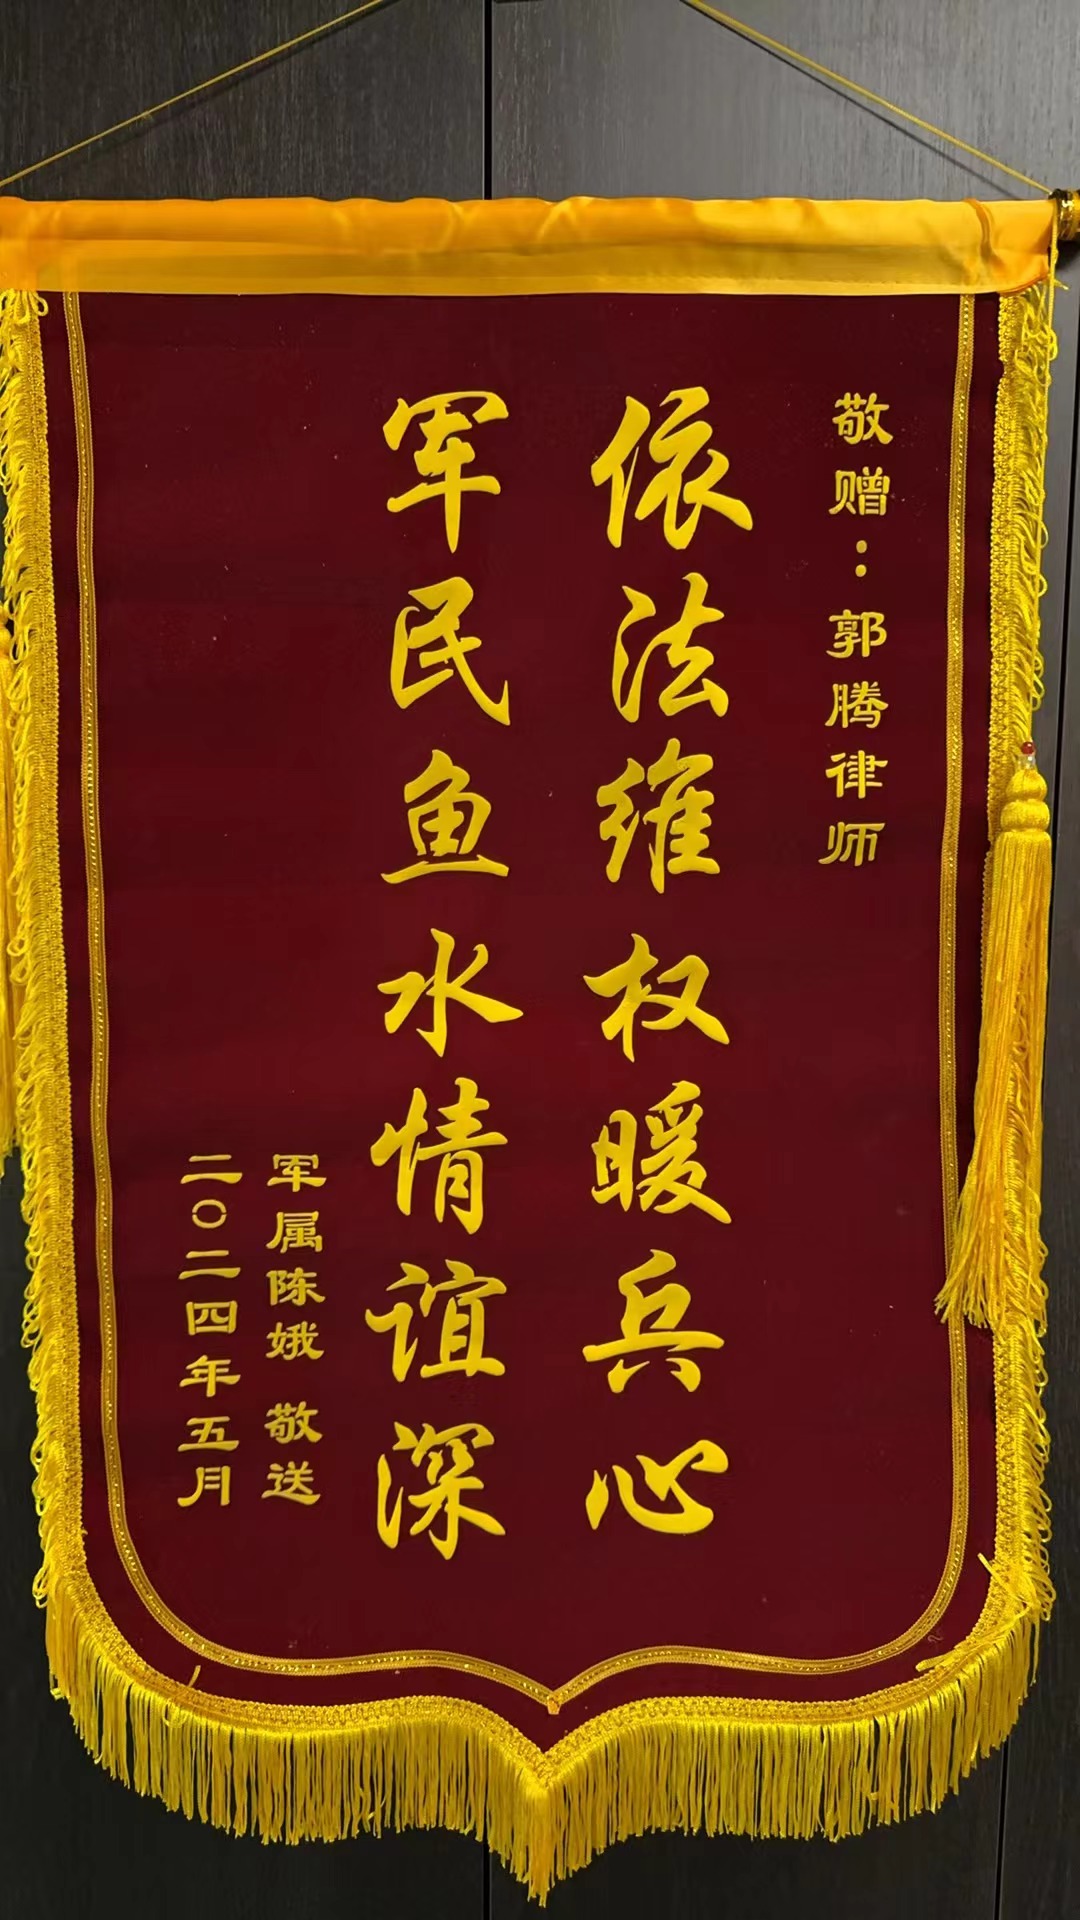 敬赠：郭腾律师
依法维权暖兵心
军民鱼水情谊深
军属陈娥 敬送
二〇二四年五月